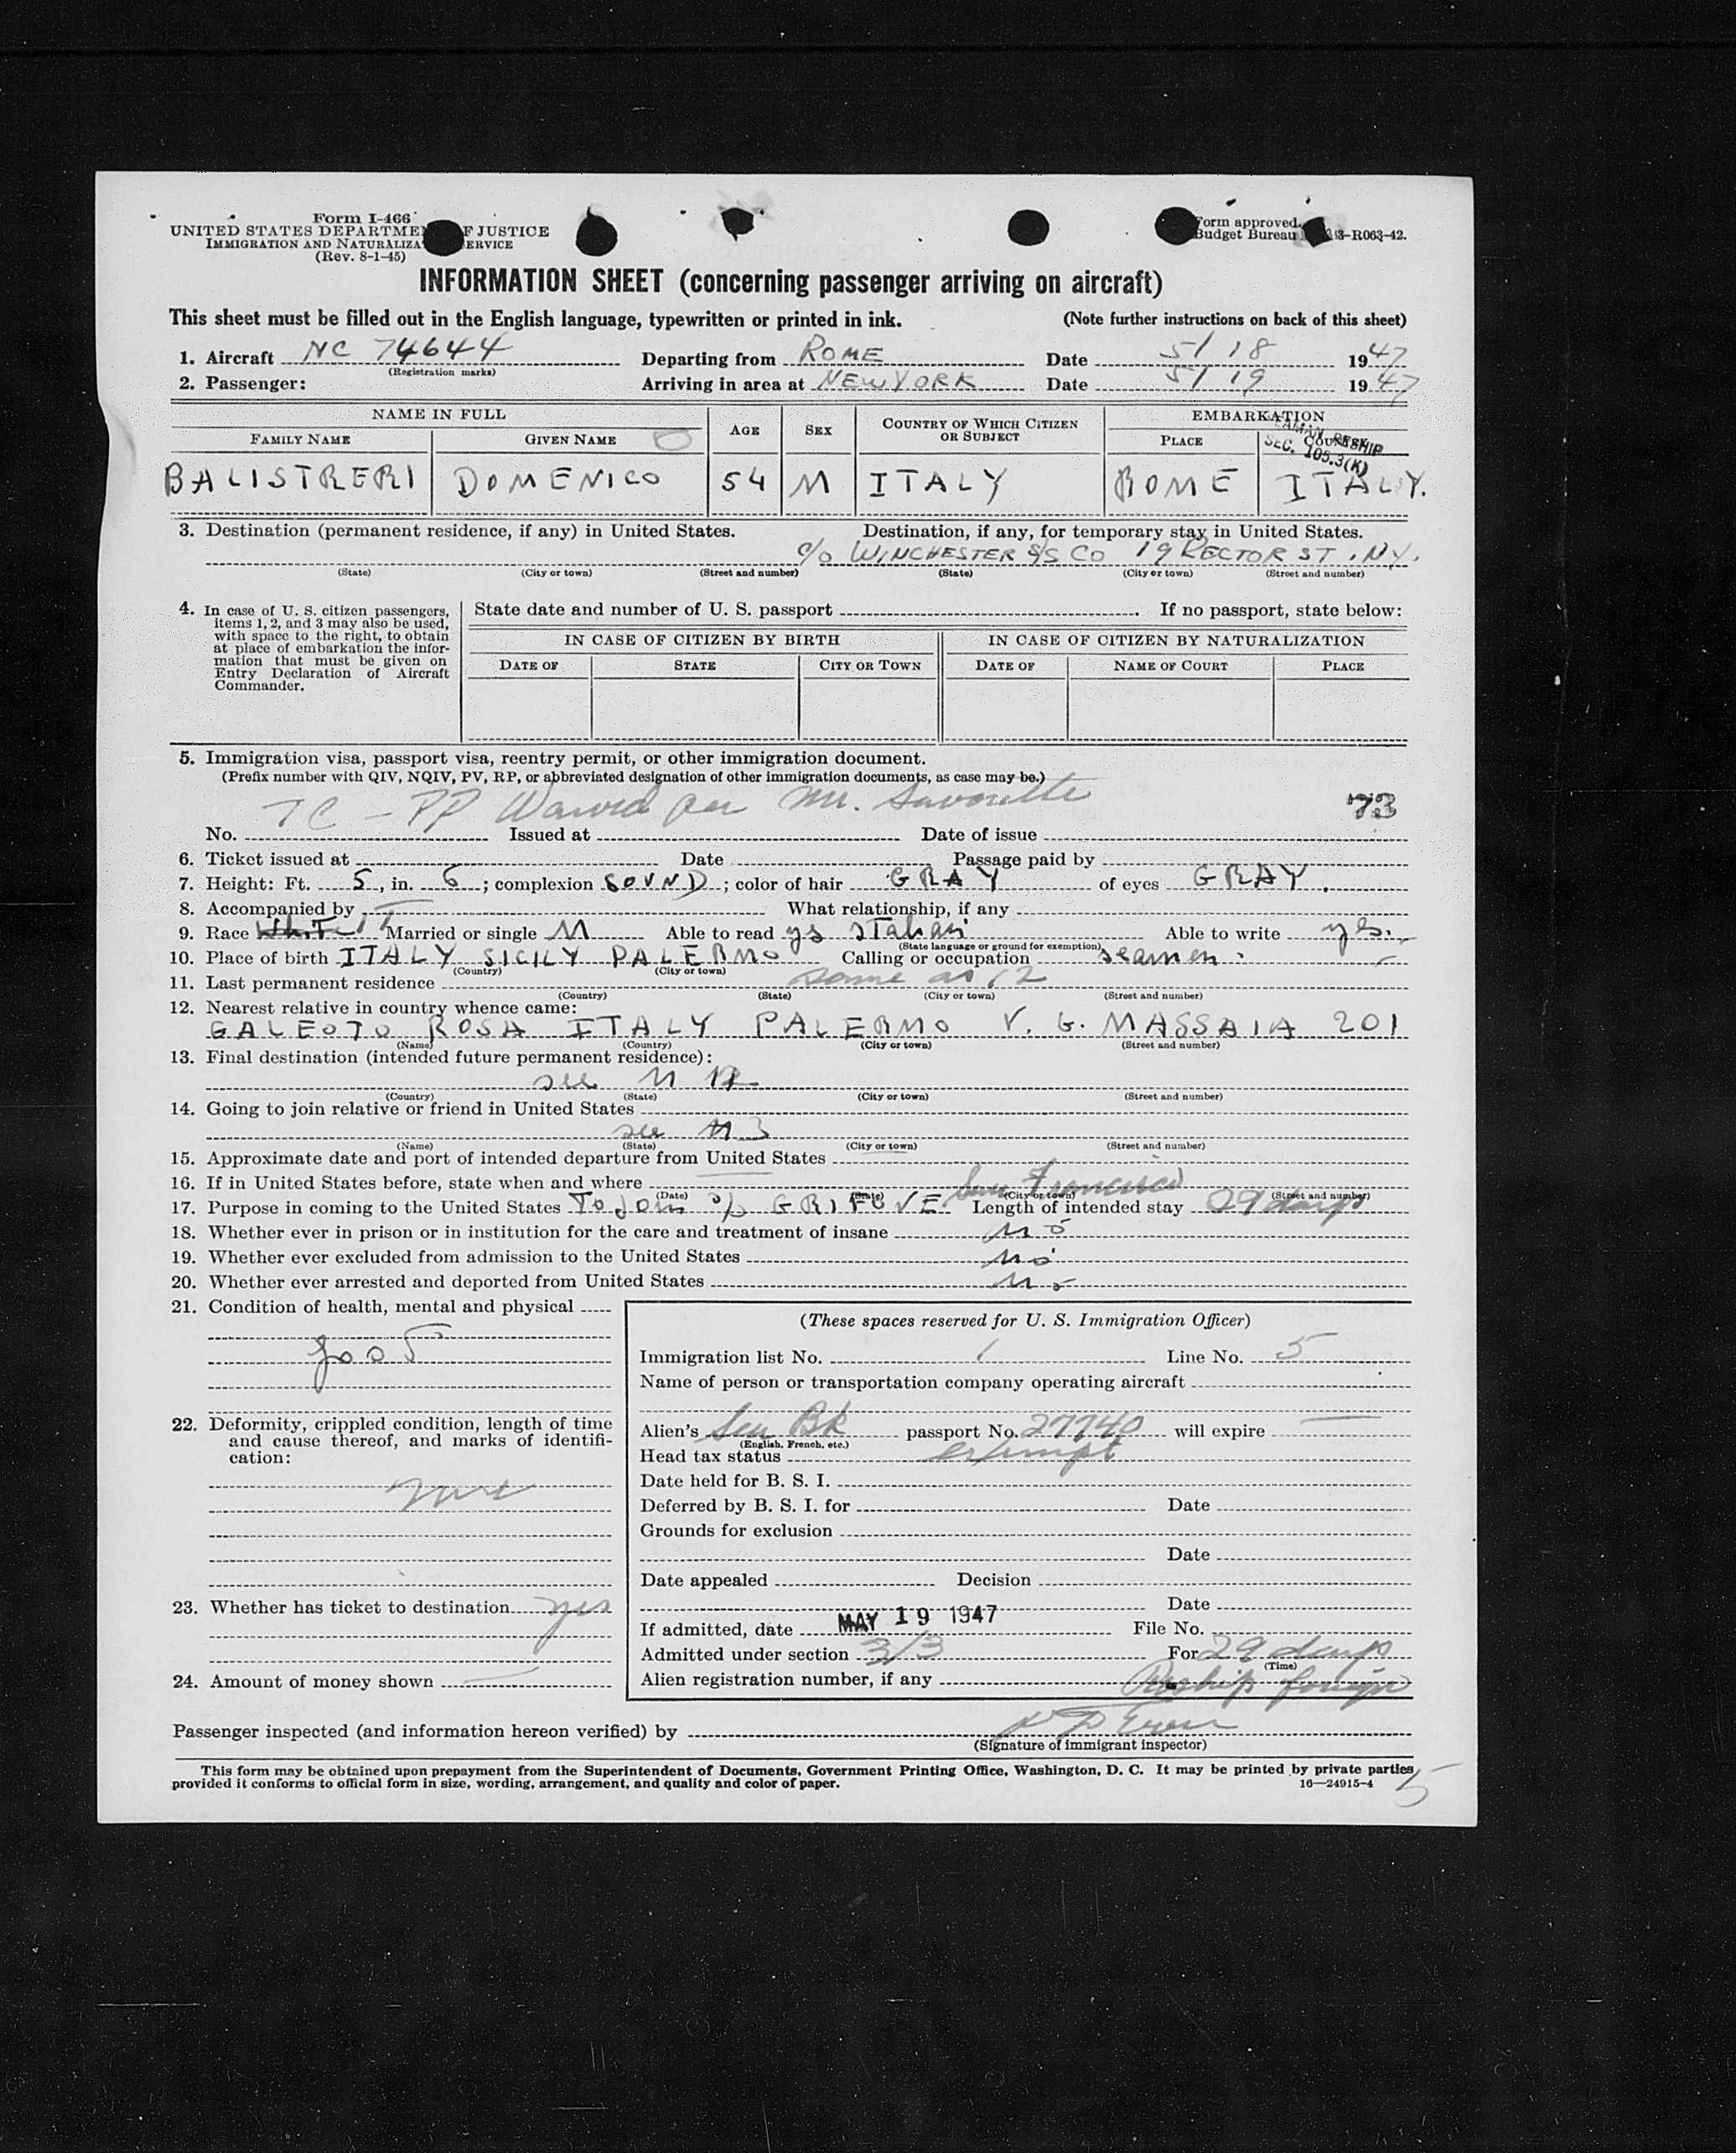 Form I-466
UNITED STATES DEPARTME F JUSTICE
IMMIGRATION AND NATURALIZA ERVICE
(Rev. 8-1-45)
Form approved.
Budget Bureau 3-R063-42.
INFORMATION SHEET (concerning passenger arriving on aircraft)
This sheet must be filled out in the English language, typewritten or printed in ink. (Note further instructions on back of this sheet)
1. Aircraft NC 74644 Departing from ROME Date 5/18 1947
(Registration marks)
2. Passenger: Arriving in area at NEW YORK Date 5/19 1947
NAME IN FULL AGE SEX COUNTRY OF WHICH CITIZEN OR SUBJECT EMBARKATION
FAMILY NAME GIVEN NAME PLACE COUNTRY
RESHIP
SEC. 105.3(K)
BALISTRERI DOMENICO 54 M ITALY ROME ITALY.
3. Destination (permanent residence, if any) in United States. Destination, if any, for temporary stay in United States.
c/o WINCHESTER S/S CO 19 RECTOR ST. N.Y.
(State) (City or town) (Street and number) (State) (City or town) (Street and number)
4. In case of U. S. citizen passengers, items 1, 2, and 3 may also be used, with space to the right, to obtain at place of embarkation the information that must be given on Entry Declaration of Aircraft Commander.
State date and number of U. S. passport . If no passport, state below:
IN CASE OF CITIZEN BY BIRTH IN CASE OF CITIZEN BY NATURALIZATION
DATE OF STATE CITY OR TOWN DATE OF NAME OF COURT PLACE
5. Immigration visa, passport visa, reentry permit, or other immigration document.
(Prefix number with QIV, NQIV, PV, RP, or abbreviated designation of other immigration documents, as case may be.)
TC - PP Waived per Mr. 73
No. Issued at Date of issue
6. Ticket issued at Date Passage paid by
7. Height: Ft. 5, in. 6; complexion SOUND; color of hair GRAY of eyes GRAY.
8. Accompanied by What relationship, if any
9. Race White IT Married or single M Able to read ys Italian Able to write yes.
(State language or ground for exemption)
10. Place of birth ITALY SICILY PALERMO Calling or occupation seamen.
(Country) (City or town)
11. Last permanent residence same as 12
(Country) (State) (City or town) (Street and number)
12. Nearest relative in country whence came:
GALEOTO ROSA ITALY PALERMO V. G. MASSAIA 201
(Name) (Country) (City or town) (Street and number)
13. Final destination (intended future permanent residence):
see N 12
(Country) (State) (City or town) (Street and number)
14. Going to join relative or friend in United States
see N 3
(Name) (State) (City or town) (Street and number)
15. Approximate date and port of intended departure from United States
16. If in United States before, state when and where San Francisco
(Date) (State) (City or town) (Street and number)
17. Purpose in coming to the United States To Join Length of intended stay 29 days
18. Whether ever in prison or in institution for the care and treatment of insane no
19. Whether ever excluded from admission to the United States no
20. Whether ever arrested and deported from United States no
21. Condition of health, mental and physical
good
22. Deformity, crippled condition, length of time and cause thereof, and marks of identification:
none
23. Whether has ticket to destination yes
24. Amount of money shown
(These spaces reserved for U. S. Immigration Officer)
Immigration list No. 1 Line No. 5
Name of person or transportation company operating aircraft
Alien's Sea Bk passport No. 27740 will expire
(English, French, etc.)
Head tax status exempt
Date held for B. S. I.
Deferred by B. S. I. for Date
Grounds for exclusion
Date
Date appealed Decision
Date
If admitted, date MAY 19 1947 File No.
Admitted under section 3/3 For 29 days
(Time)
Alien registration number, if any Reship foreign
Passenger inspected (and information hereon verified) by
(Signature of immigrant inspector)
This form may be obtained upon prepayment from the Superintendent of Documents, Government Printing Office, Washington, D. C. It may be printed by private parties
provided it conforms to official form in size, wording, arrangement, and quality and color of paper. 16—24915-4
5